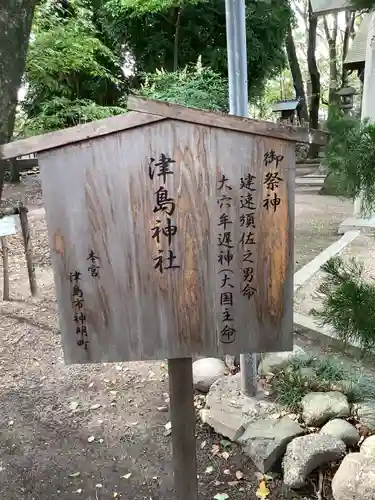 御祭神
建速須佐之男命
大穴牟遅神(大国主命)
津島神社
本宮
津島市神明町